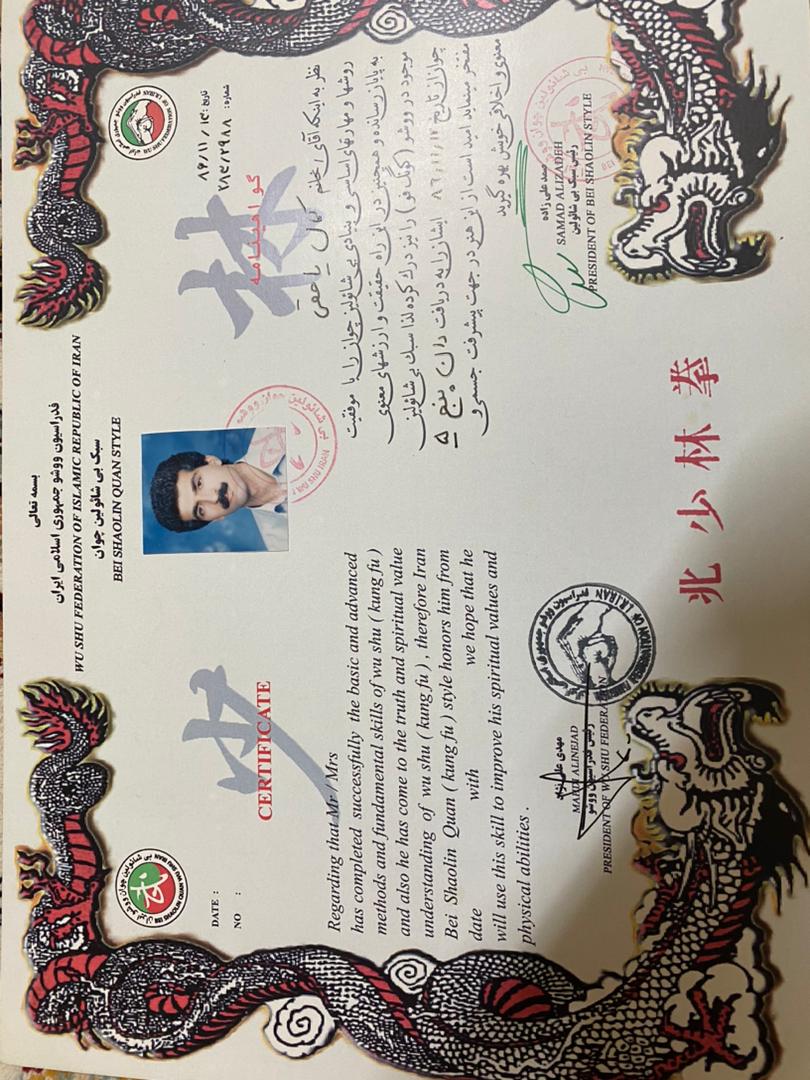 بسمه تعالی
فدراسیون ووشو جمهوری اسلامی ایران
WU SHU FEDERATION OF ISLAMIC REPUBLIC OF IRAN
سبک بی شائولین چوان
BEI SHAOLIN QUAN STYLE
DATE :
NO :
少
CERTIFICATE
Regarding that Mr / Mrs
has completed successfully the basic and advanced
methods and fundamental skills of wu shu ( kung fu )
and also he has come to the truth and spiritual value
understanding of wu shu ( kung fu ) , therefore Iran
Bei Shaolin Quan ( kung fu ) style honors him from
date with we hope that he
will use this skill to improve his spiritual values and
physical abilities .
مهدی علی نژاد
MAHDI ALINEJAD
رئیس فدراسیون ووشو
PRESIDENT OF WU SHU FEDERA
تاریخ:
شماره:
林
گواهینامه
نظر به اینکه آقای / خانم
روشها و مهارتهای اساسی و بنیادی بی شائولین چوان را با موفقیت
به پایان رسانده و همچنین در این راه حقیقت و ارزشهای معنوی
موجود در ووشو ( کونگ فو ) را نیز درک کرده لذا سبک بی شائولین
چوان از تاریخ ایشان را به دریافت دان پنج ۵
مفتخر مینماید امید است از این هنر در جهت پیشرفت جسمی و
معنوی و اخلاقی خویش بهره گیرید
صمد علی زاده
SAMAD ALIZADEH
رئیس سبک بی شائولین
PRESIDENT OF BEI SHAOLIN STYLE
北少林拳